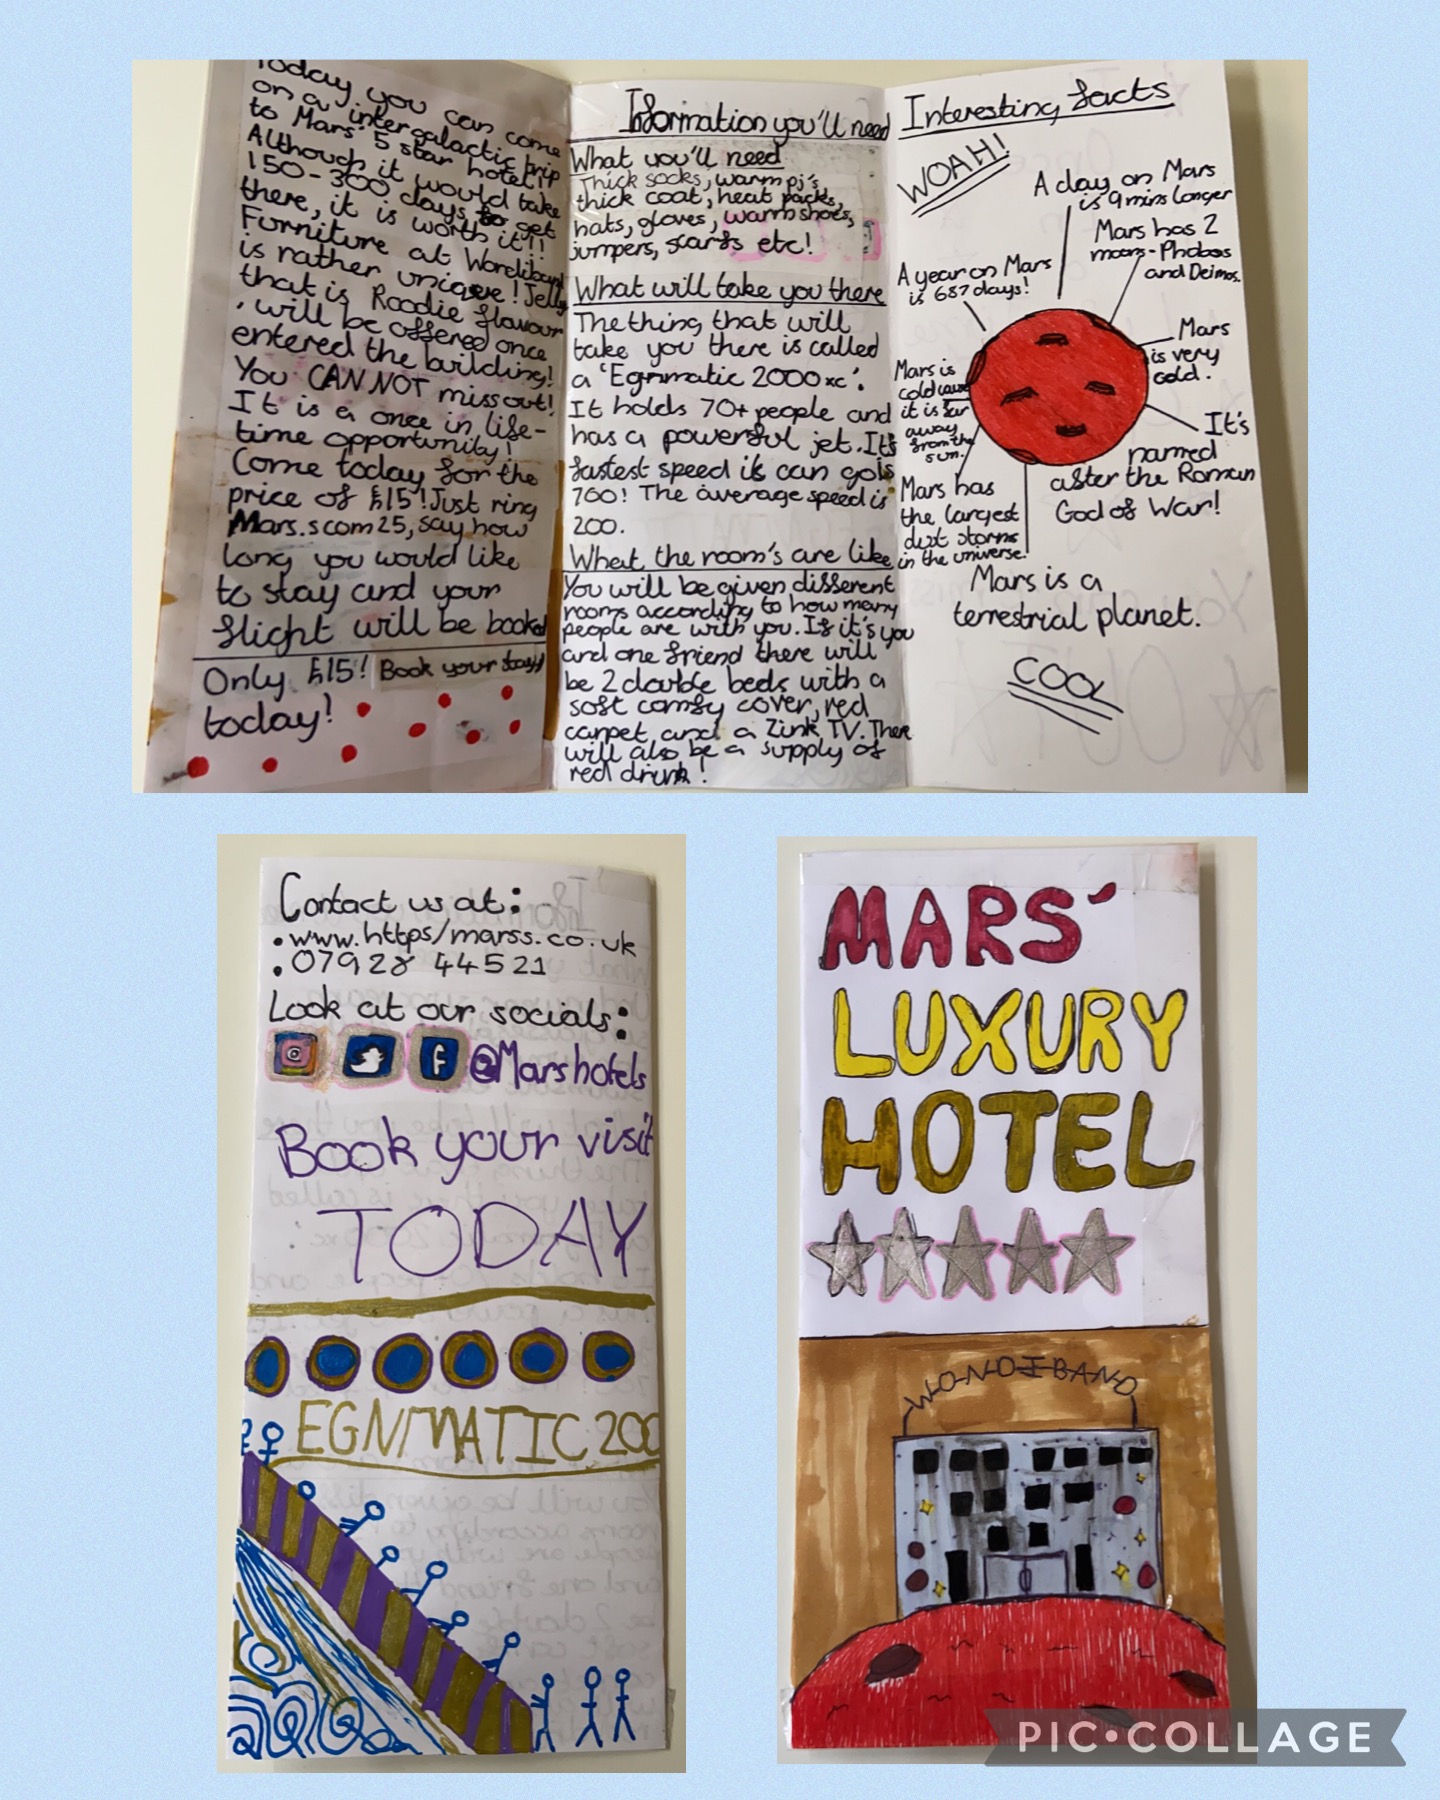 Today you can come
on a intergalactic trip
to Mars' 5 star hotel!
Although it would take
150-300 days to get
there, it is worth it!!
Furniture at
is rather unique! Jelly
that is Roodie flavour
, will be offered once
entered the building!
You CAN NOT miss out!
It is a once in life-
time opportunity!
Come today for the
price of £15! Just ring
Mars.scom25, say how
long you would like
to stay and your
flight will be booked
Only £15! Book your stay
today!
Information you'll need
What you'll need
Thick socks, warm pj's,
thick coat, heat packs,
hats, gloves, warm shoes,
jumpers, scarfs etc!
What will take you there
The thing that will
take you there is called
a 'Egnmatic 2000xc'.
It holds 70+ people and
has a powerful jet. It's
fastest speed is can go is
700! The average speed is
200.
What the room's are like
You will be given different
rooms according to how many
people are with you. If it's you
and one friend there will
be 2 double beds with a
soft comfy cover, red
carpet and a Zink TV. There
will also be a supply of
red drink!
Interesting facts
WOAH!
A day on Mars
is 9 mins longer
Mars has 2
moons - Phobos
and Deimos.
A year on Mars
is 687 days!
Mars
is very
cold.
Mars is
cold cause
it is far
away
from the
sun.
It's
named
after the Roman
God of War!
Mars has
the largest
dust storms
in the universe!
Mars is a
terrestrial planet.
COOL
Contact us at:
• www.https/marss.co.uk
• 07928 44521
Look at our socials:
f @Mars hotels
Book your visit
TODAY
EGNIMATIC 200
MARS'
LUXURY
HOTEL
WONDIBAND
PIC•COLLAGE